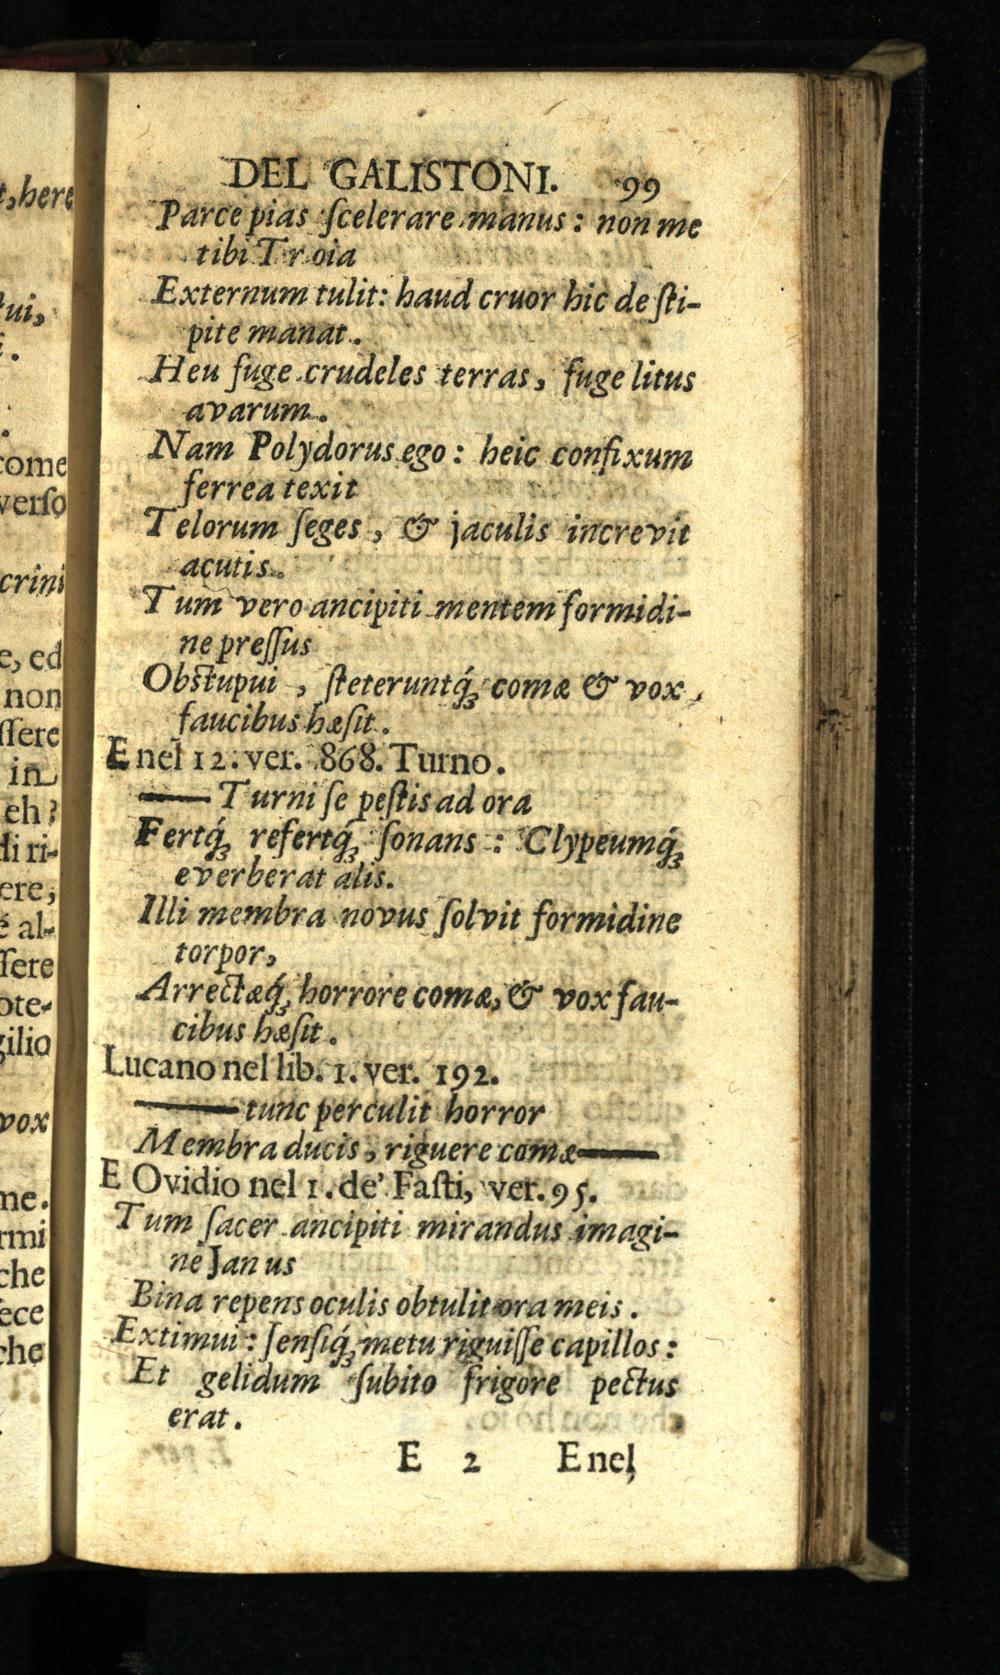 DEL GALISTONI. 99
Parce pias ſcelerare manus : non me
tibi Troia
Externum tulit: haud cruor hic de ſti-
pite manat.
Heu fuge crudeles terras, fuge litus
avarum.
Nam Polydorus ego : heic confixum
ferrea texit
Telorum ſeges, & jaculis increvit
acutis.
Tum vero ancipiti mentem formidi-
ne preſſus
Obstupui, ſteteruntq́; comæ & vox
faucibus hæſit.
E nel 12. ver. 868. Turno.
—— Turni ſe peſtis ad ora
Fertq́; refertq́; ſonans : Clypeumq́;
everberat alis.
Illi membra novus ſolvit formidine
torpor,
Arrectæq́; horrore comæ, & vox fau-
cibus hæſit.
Lucano nel lib. 1. ver. 192.
—— tunc perculit horror
Membra ducis, riguere comæ——
E Ovidio nel 1. de' Faſti, ver. 95.
Tum ſacer ancipiti mirandus imagi-
ne Janus
Bina repens oculis obtulit ora meis.
Extimui : ſenſiq́; metu riguiſſe capillos :
Et gelidum ſubito frigore pectus
erat.
E 2 E nel
t, here
ui,
i.
come
verſo
crini
e, ed
non
ſſere
in
eh?
di ri-
ere;
é al-
ſſere
ote-
gilio
vox
me.
rmi
che
ece
che